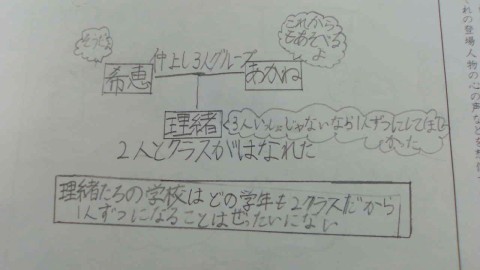 そうだよ
これから
もあそべる
よ
仲よし3人グループ
希恵
あかね
理緒
3人いっしょじゃないなら1人ずつにしてほし
かった
2人とクラスがはなれた
理緒たちの学校はどの学年も2クラスだから
1人ずつになることはぜったいにない
れの登場人物の心の声など